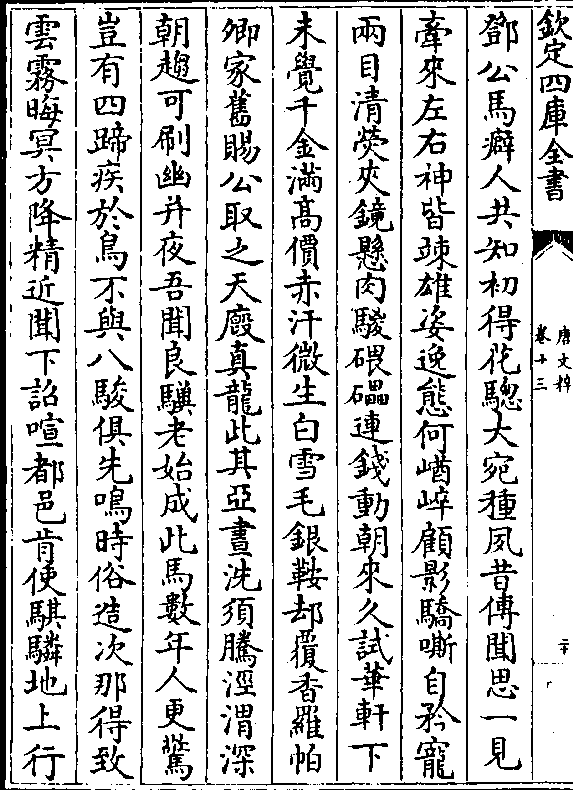 欽定四庫全書
唐文粹
卷十三
二十
鄧公馬癖人共知初得花驄大宛種夙昔傳聞思一見
牽來左右神皆竦雄姿逸態何崷崒顧影驕嘶自矜寵
兩目清熒夾鏡懸肉駿碨礧連錢動朝來久試華軒下
未覺千金滿高價赤汗微生白雪毛銀鞍却覆香羅帕
卿家舊賜公取之天廐真龍此其亞晝洗須騰涇渭深
朝趨可刷幽并夜吾聞良驥老始成此馬數年人更驚
豈有四蹄疾於鳥不與八駿俱先鳴時俗造次那得致
雲霧晦冥方降精近聞下詔喧都邑肯使騏驎地上行